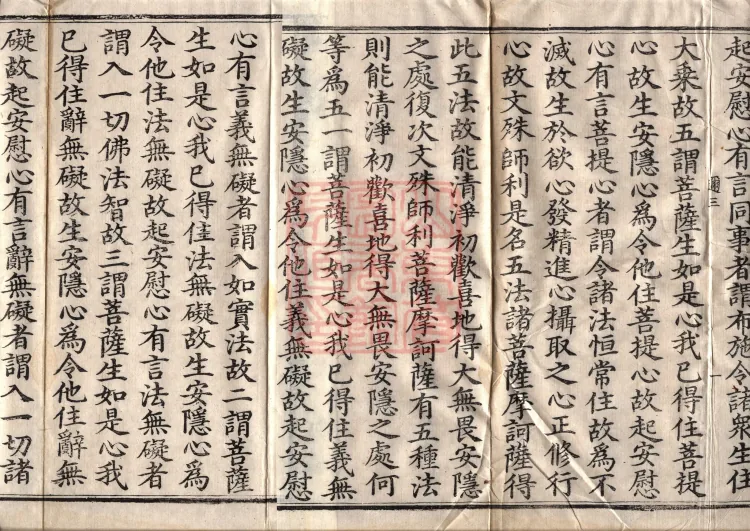 起安慰心有言同事者謂布施令諸衆生住
大乗故五謂菩薩生如是心我已得住菩提
心故生安隱心爲令他住菩提心故起安慰
心有言菩提心者謂令諸法恒常住故爲不
滅故生於欲心發精進心攝取之心正修行
心故文殊師利是名五法諸菩薩摩訶薩得
此五法故能清淨初歡喜地得大無畏安隱
之處復次文殊師利菩薩摩訶薩有五種法
則能清淨初歡喜地得大無畏安隱之處何
等爲五一謂菩薩生如是心我已得住義無
礙故生安隱心爲令他住義無礙故起安慰
心有言義無礙者謂入如實法故二謂菩薩
生如是心我已得住法無礙故生安隱心爲
令他住法無礙故起安慰心有言法無礙者
謂入一切佛法智故三謂菩薩生如是心我
已得住辭無礙故生安隱心爲令他住辭無
礙故起安慰心有言辭無礙者謂入一切諸